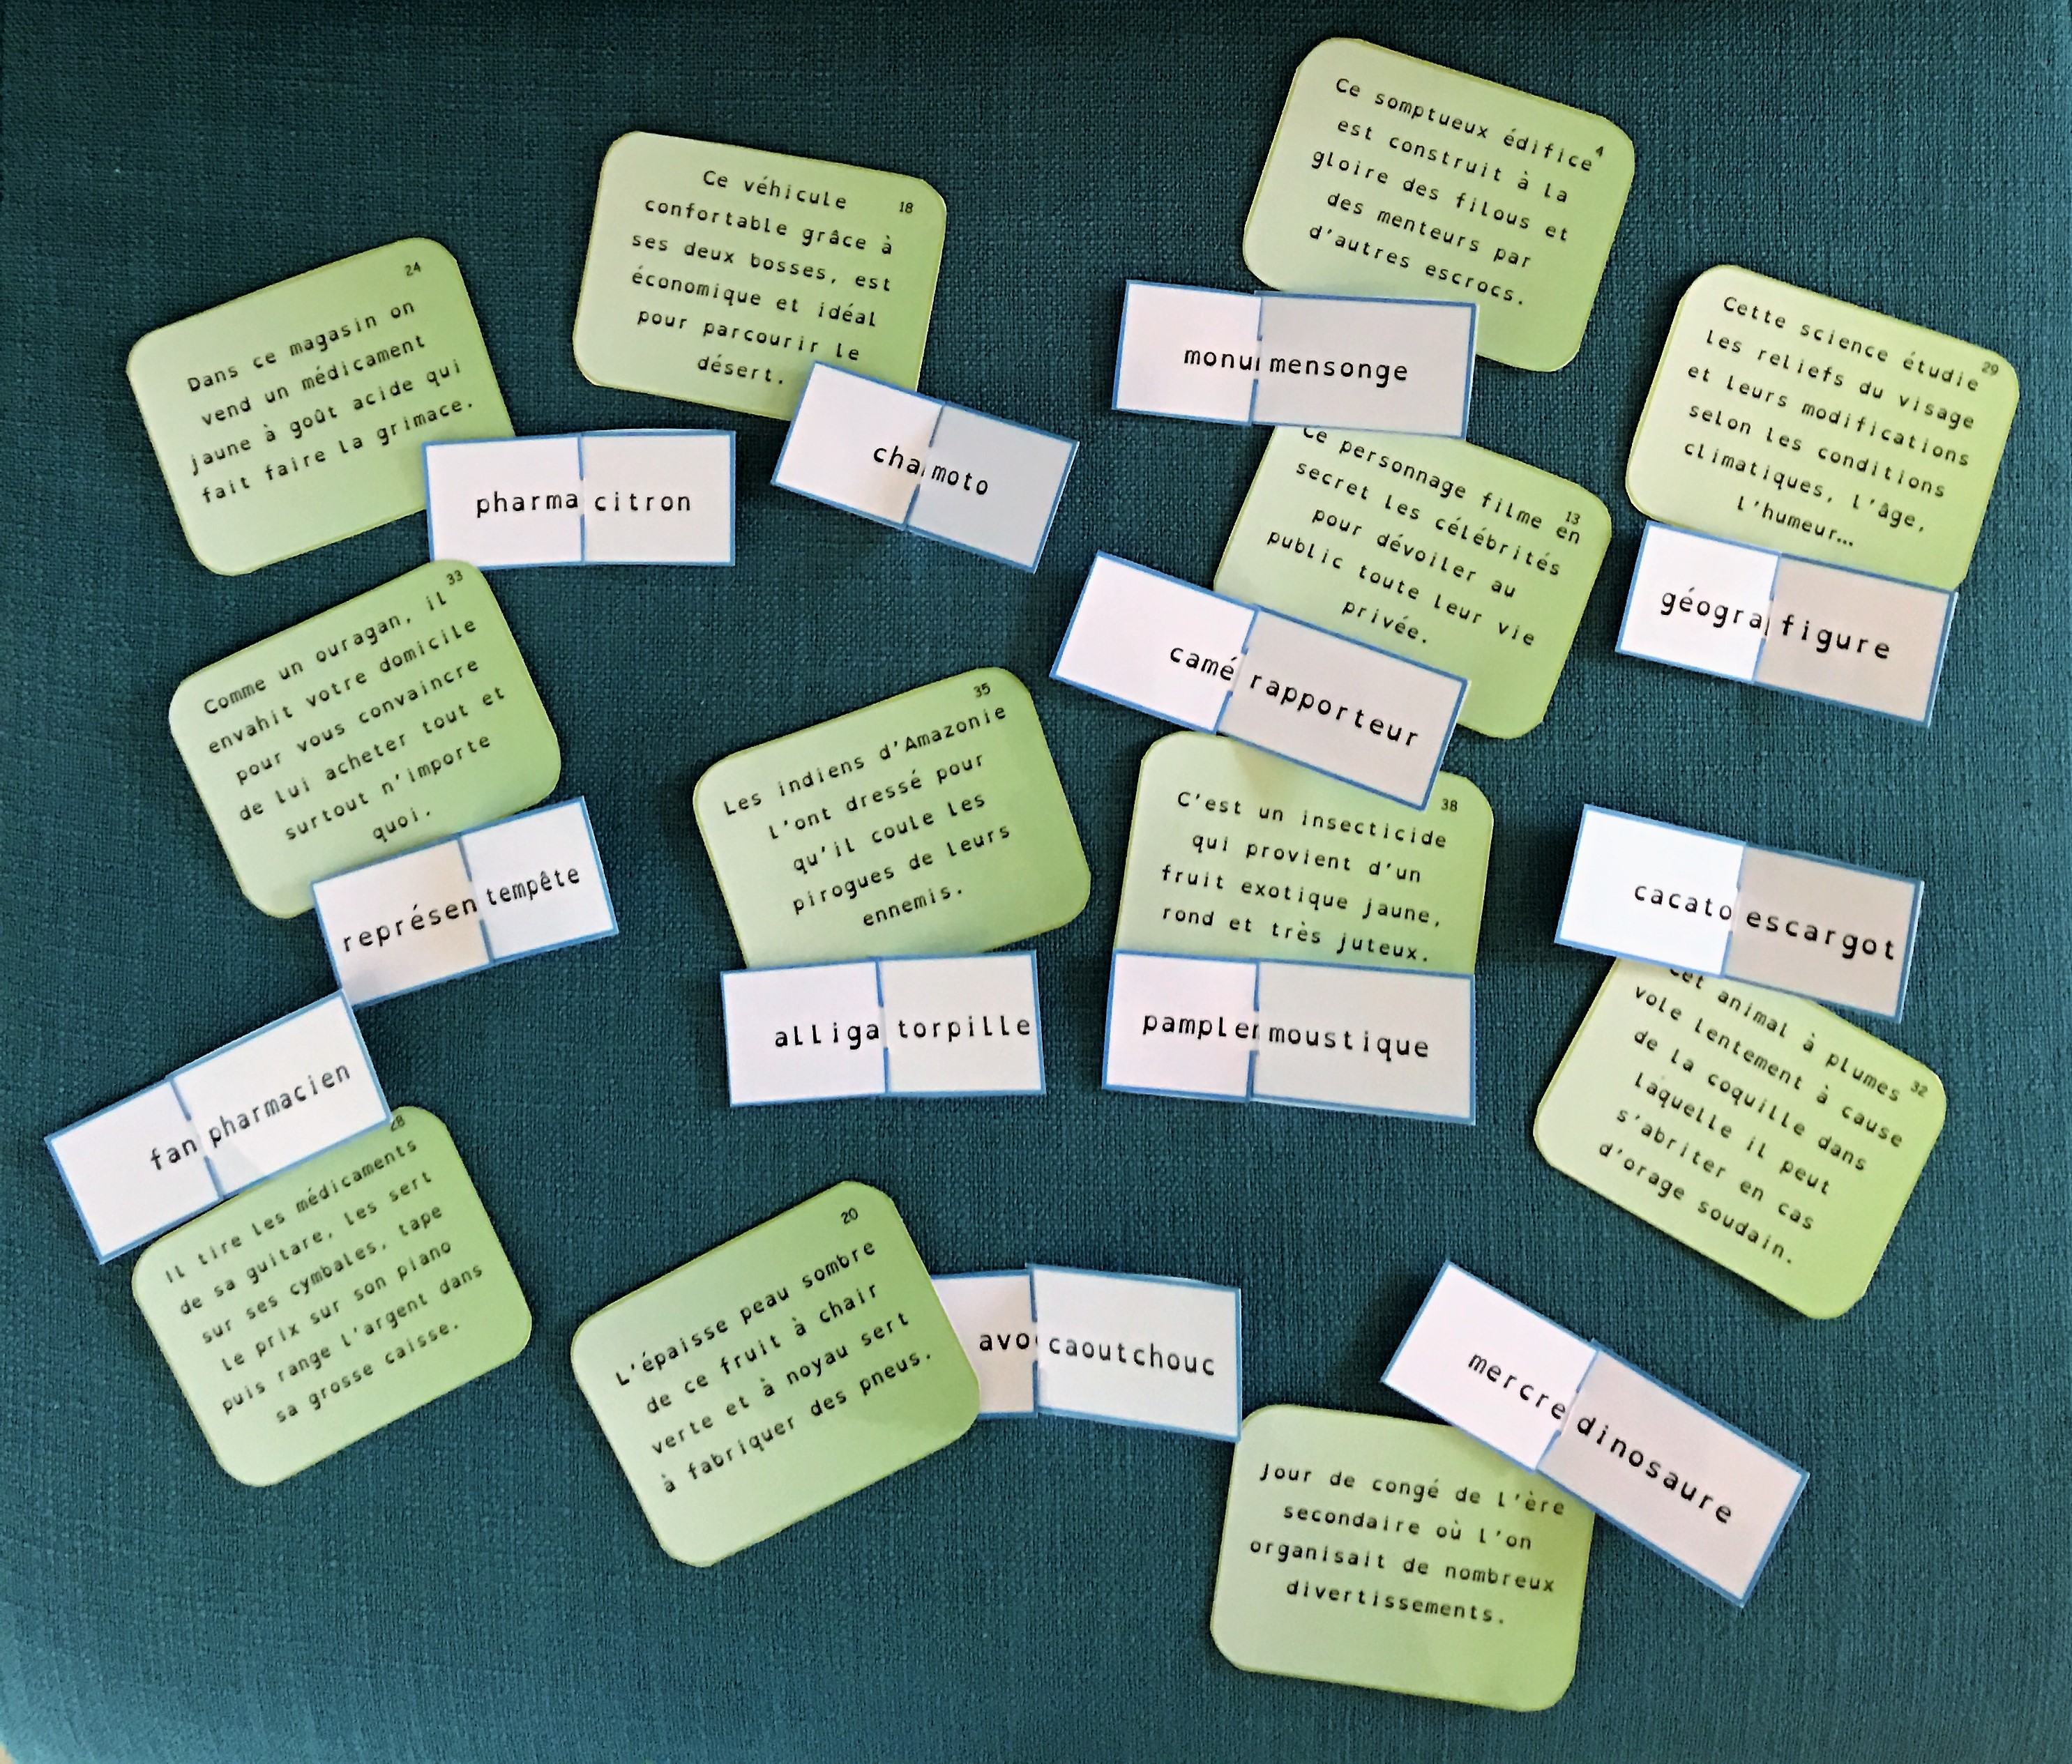 24
Dans ce magasin on
vend un médicament
jaune à goût acide qui
fait faire la grimace.
pharma citron
Ce véhicule
18
confortable grâce à
ses deux bosses, est
économique et idéal
pour parcourir le
désert.
cha moto
Ce somptueux édifice
4
est construit à la
gloire des filous et
des menteurs par
d'autres escrocs.
monu mensonge
Cette science étudie
29
les reliefs du visage
et leurs modifications
selon les conditions
climatiques, l'âge,
l'humeur...
géogra figure
Ce personnage filme en
13
secret les célébrités
pour dévoiler au
public toute leur vie
privée.
camé rapporteur
33
Comme un ouragan, il
envahit votre domicile
pour vous convaincre
de lui acheter tout et
surtout n'importe
quoi.
représen tempête
35
Les indiens d'Amazonie
l'ont dressé pour
qu'il coule les
pirogues de leurs
ennemis.
alliga torpille
38
C'est un insecticide
qui provient d'un
fruit exotique jaune,
rond et très juteux.
pample moustique
cacato escargot
Cet animal à plumes
32
vole lentement à cause
de la coquille dans
laquelle il peut
s'abriter en cas
d'orage soudain.
fan pharmacien
28
Il tire les médicaments
de sa guitare, les sert
sur ses cymbales, tape
le prix sur son piano
puis range l'argent dans
sa grosse caisse.
20
L'épaisse peau sombre
de ce fruit à chair
verte et à noyau sert
à fabriquer des pneus.
avo caoutchouc
mercre dinosaure
Jour de congé de l'ère
secondaire où l'on
organisait de nombreux
divertissements.